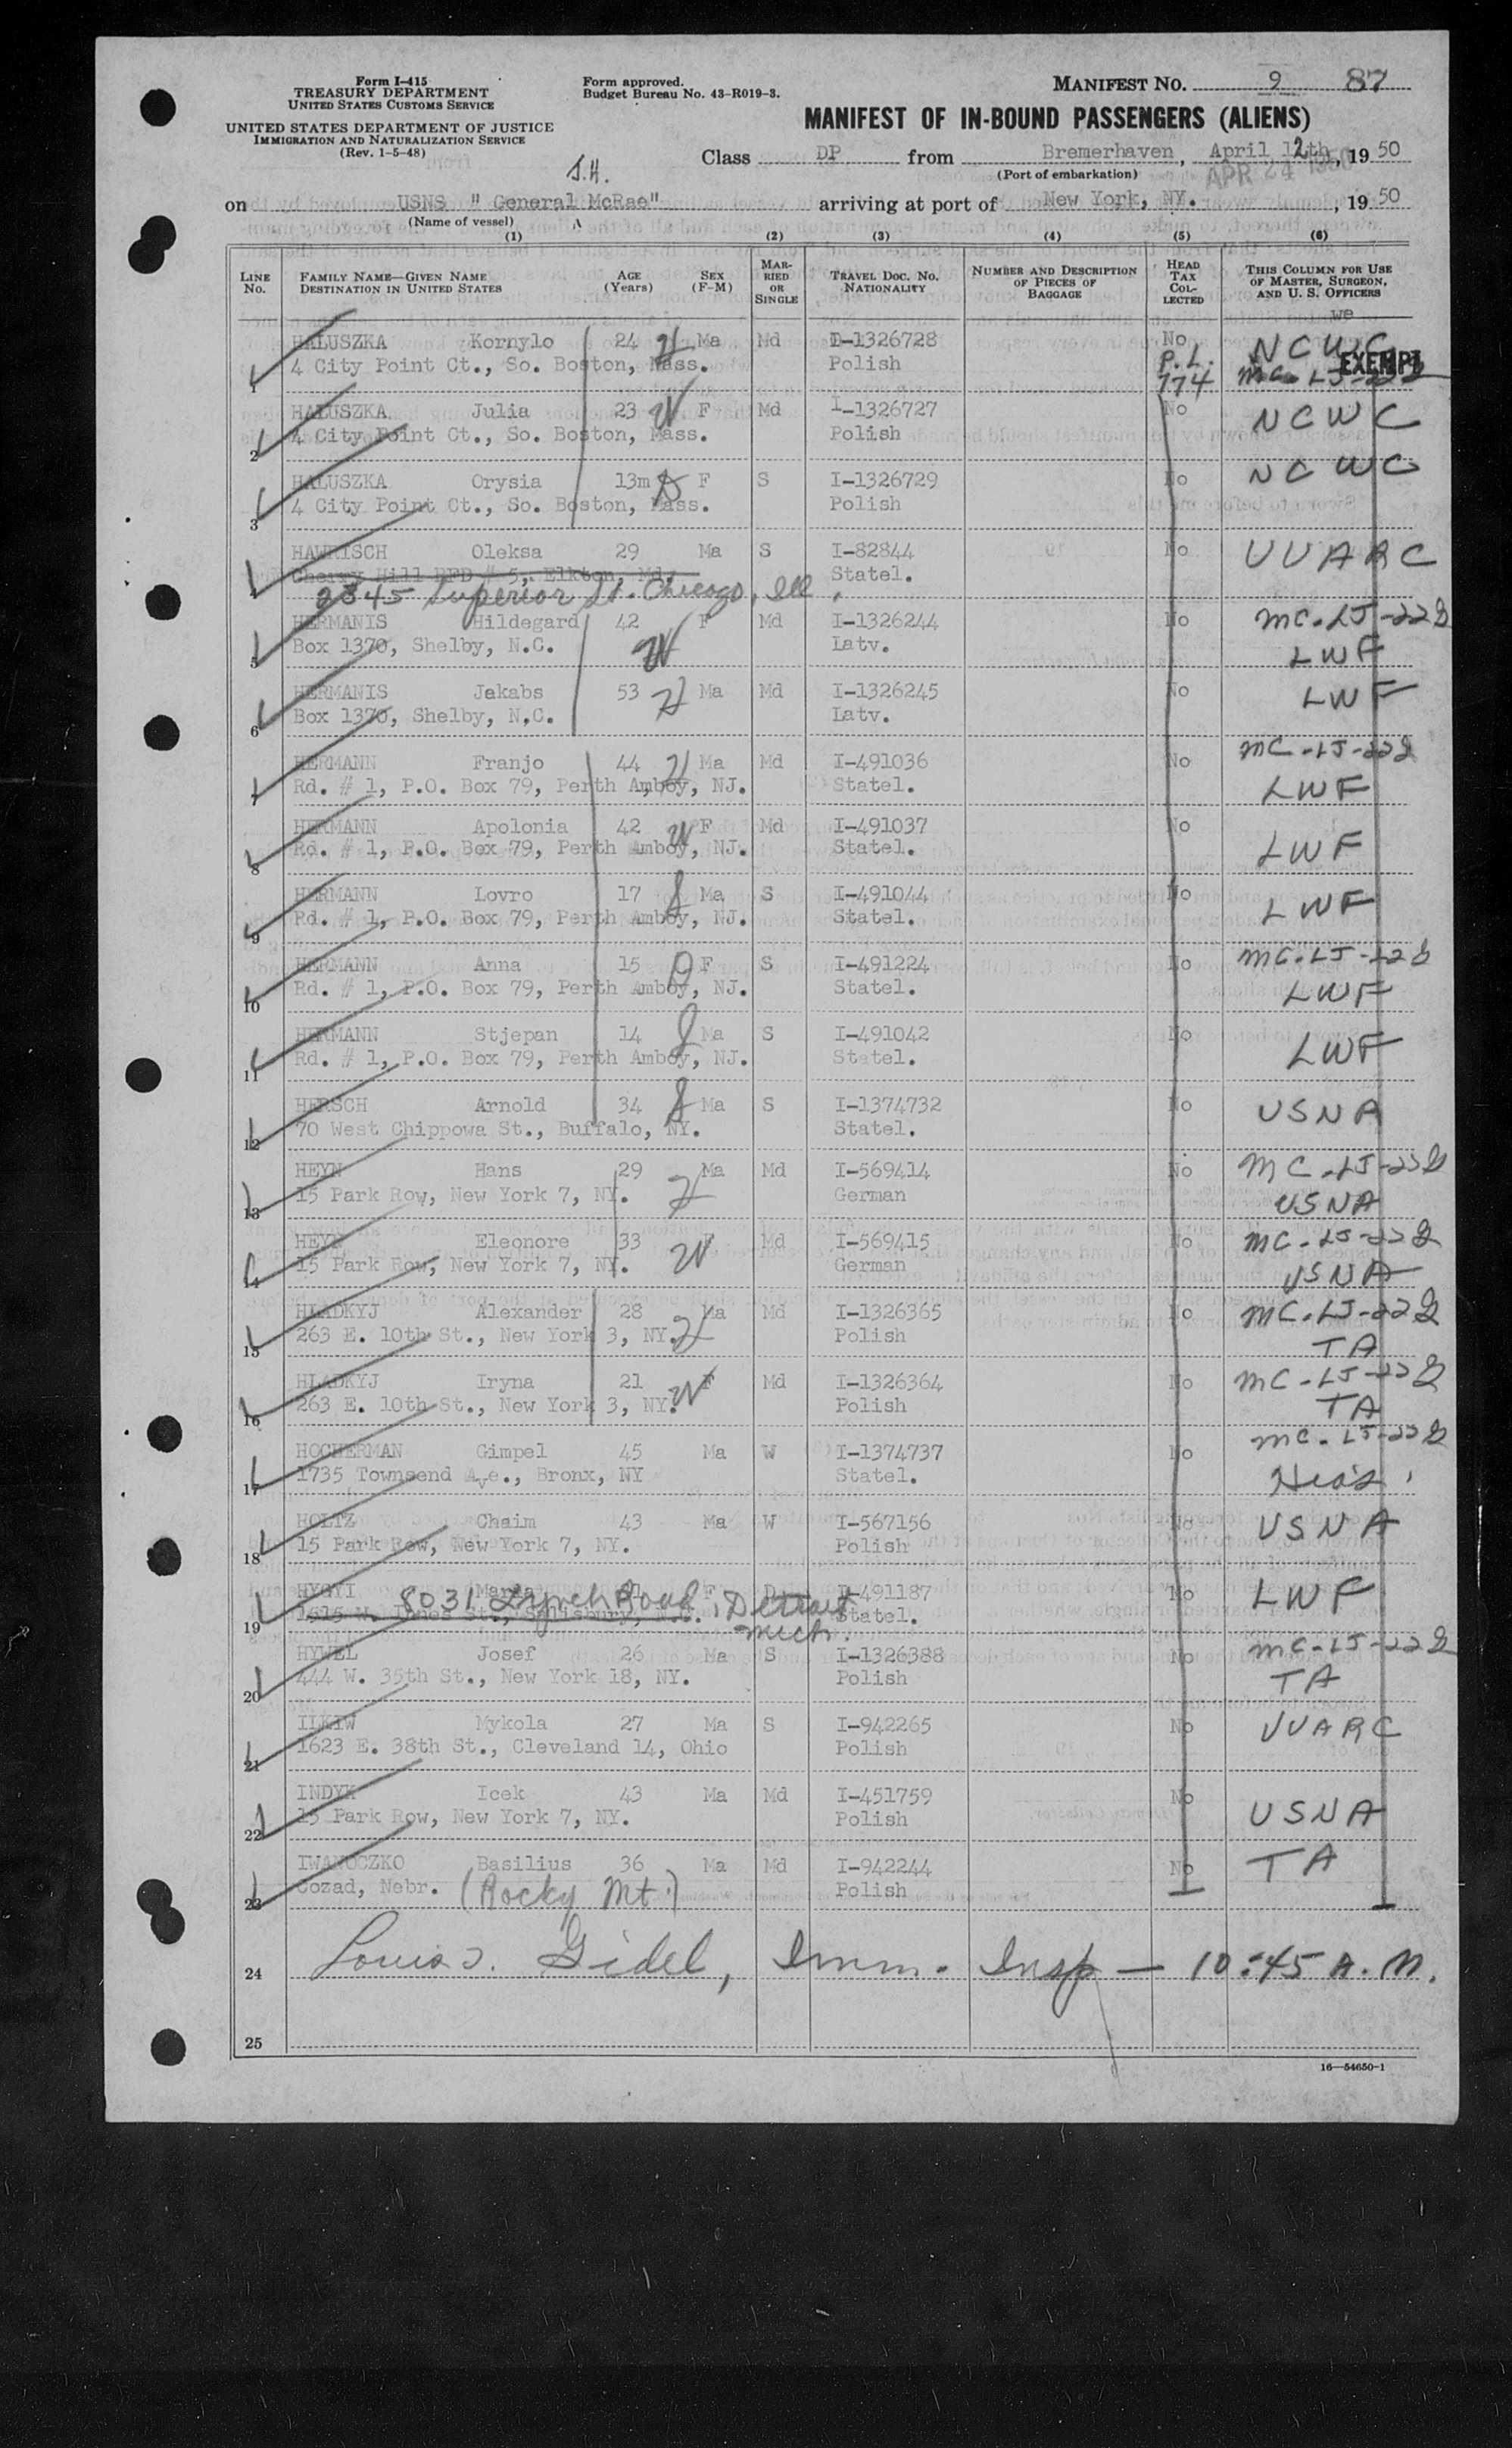 Form I-415
TREASURY DEPARTMENT
UNITED STATES CUSTOMS SERVICE
UNITED STATES DEPARTMENT OF JUSTICE
IMMIGRATION AND NATURALIZATION SERVICE
(Rev. 1-5-48)
Form approved.
Budget Bureau No. 43-R019-3.
MANIFEST NO. 9 87
MANIFEST OF IN-BOUND PASSENGERS (ALIENS)
Class DP from Bremerhaven, April 12th, 1950
(Port of embarkation)
APR 24 1950
S.H.
on USNS " General McRae" arriving at port of New York, NY., 1950
(Name of vessel)
(1) (2) (3) (4) (5) (6)
LINE NO. FAMILY NAME—GIVEN NAME DESTINATION IN UNITED STATES AGE (Years) SEX (F-M) MARRIED OR SINGLE TRAVEL DOC. NO. NATIONALITY NUMBER AND DESCRIPTION OF PIECES OF BAGGAGE HEAD TAX COLLECTED THIS COLUMN FOR USE OF MASTER, SURGEON, AND U. S. OFFICERS
we
HALUSZKA Kornylo 24 Ma Md I-1326728 No NCWC
1 4 City Point Ct., So. Boston, Mass. Polish P.L. 774 MC-LJ-22 EXEMPT
HALUSZKA Julia 23 F Md I-1326727 No NCWC
2 4 City Point Ct., So. Boston, Mass. Polish
HALUSZKA Orysia 13m F S I-1326729 No NCWC
3 4 City Point Ct., So. Boston, Mass. Polish
HAWRISCH Oleksa 29 Ma S I-82844 No UUARC
4 Cherry Hill RFD # 5, Elkton, Md. Statel.
2345 Superior St. Chicago, Ill.
HERMANIS Hildegard 42 F Md I-1326244 No MC-LJ-22
5 Box 1370, Shelby, N.C. Latv. LWF
HERMANIS Jekabs 53 Ma Md I-1326245 No LWF
6 Box 1370, Shelby, N.C. Latv.
HERMANN Franjo 44 Ma Md I-491036 No MC-LJ-22
7 Rd. # 1, P.O. Box 79, Perth Amboy, NJ. Statel. LWF
HERMANN Apolonia 42 F Md I-491037 No
8 Rd. # 1, P.O. Box 79, Perth Amboy, NJ. Statel. LWF
HERMANN Lovro 17 Ma S I-491044 No LWF
9 Rd. # 1, P.O. Box 79, Perth Amboy, NJ. Statel.
HERMANN Anna 15 F S I-491224 No MC-LJ-22
10 Rd. # 1, P.O. Box 79, Perth Amboy, NJ. Statel. LWF
HERMANN Stjepan 14 Ma S I-491042 No LWF
11 Rd. # 1, P.O. Box 79, Perth Amboy, NJ. Statel.
HERSCH Arnold 34 Ma S I-1374732 No USNA
12 70 West Chippowa St., Buffalo, NY. Statel.
HEYN Hans 29 Ma Md I-569414 No MC-LJ-22
13 15 Park Row, New York 7, NY. German USNA
HEYN Eleonore 33 F Md I-569415 No MC-LJ-22
14 15 Park Row, New York 7, NY. German USNA
HLADKYJ Alexander 28 Ma Md I-1326365 No MC-LJ-22
15 263 E. 10th St., New York 3, NY. Polish TA
HLADKYJ Iryna 21 F Md I-1326364 No MC-LJ-22
16 263 E. 10th St., New York 3, NY. Polish TA
HOCHERMAN Gimpel 45 Ma W I-1374737 No MC-LJ-22
17 1735 Townsend Ave., Bronx, NY Statel. Hias
HOLTZ Chaim 43 Ma W I-567156 No USNA
18 15 Park Row, New York 7, NY. Polish
HYGYI F I-491187 No LWF
8031 Lynch Road, Detroit Mich.
19 Salisbury, N.C. Statel.
HYWEL Josef 26 Ma S I-1326388 No MC-LJ-22
20 444 W. 35th St., New York 18, NY. Polish TA
ILKIW Mykola 27 Ma S I-942265 No UUARC
21 1623 E. 38th St., Cleveland 14, Ohio Polish
INDYK Icek 43 Ma Md I-451759 No
22 15 Park Row, New York 7, NY. Polish USNA
IWANOCZKO Basilius 36 Ma Md I-942244 No TA
23 Cozad, Nebr. (Rocky Mt.) Polish
24 Louis J. Gidel, Imm. Insp — 10:45 A.M.
25
16—54650-1